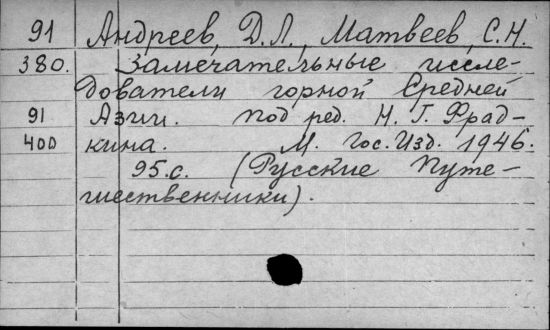 91 Андреев, Д.Л., Матвеев, С.Н.
380. Замечательные иссле-
дователи горной Средней
91 Азии. под ред. Н.Г. Фрад-
400 кина. М. Гос.Изд. 1946.
95.с. (Русские путе-
шественники).